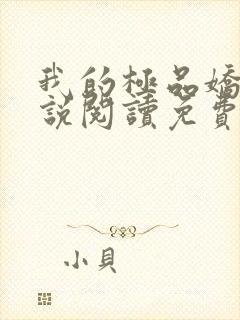 我的極品嬌
說閱讀免費
小貝